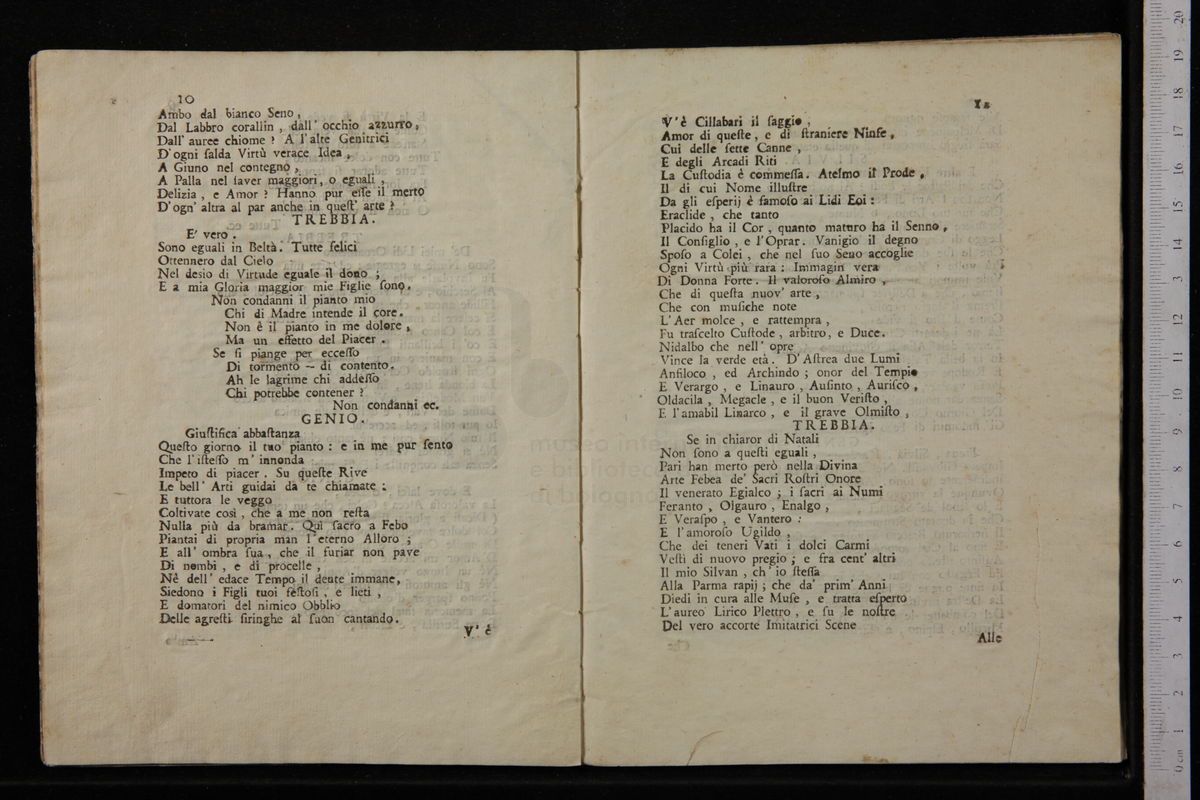 10
Ambo dal bianco Seno,
Dal Labbro corallin, dall' occhio azzurro,
Dall' auree chiome? A l'alte Genitrici
D'ogni ſalda Virtù verace Idea,
A Giuno nel contegno,
A Palla nel ſaver maggiori, o eguali,
Delizia, e Amor? Hanno pur eſſe il merto
D'ogn' altra al par anche in queſt' arte?
TREBBIA.
E' vero.
Sono eguali in Beltà. Tutte felici
Ottennero dal Cielo
Nel desio di Virtude eguale il dono;
E a mia Gloria maggior mie Figlie ſono.
Non condanni il pianto mio
Chi di Madre intende il core.
Non è il pianto in me dolore,
Ma un effetto del Piacer.
Se ſi piange per ecceſſo
Di tormento - di contento.
Ah le lagrime chi addeſſo
Chi potrebbe contener?
Non condanni ec.
GENIO.
Giuſtifica abbaſtanza
Queſto giorno il tuo pianto: e in me pur ſento
Che l'iſteſſo m' innonda
Impeto di piacer. Su queſte Rive
Le bell' Arti guidai da te chiamate:
E tuttora le veggo
Coltivate così, che a me non reſta
Nulla più da bramar. Quì ſacro a Febo
Piantai di propria man l'eterno Alloro;
E all' ombra ſua, che il furiar non pave
Di nembi, e di procelle,
Nè dell' edace Tempo il dente immane,
Siedono i Figli tuoi feſtoſi, e lieti,
E domatori del nimico Obblio
Delle agreſti ſiringhe al ſuon cantando.
V' è
11
V'è Cillabari il ſaggio,
Amor di queſte, e di ſtraniere Ninfe,
Cui delle ſette Canne,
E degli Arcadi Riti
La Cuſtodia è commeſſa. Ateſmo il Prode,
Il di cui Nome illuſtre
Da gli eſperij è famoſo ai Lidi Eoi:
Eraclide, che tanto
Placido ha il Cor, quanto maturo ha il Senno,
Il Conſiglio, e l'Oprar. Vanigio il degno
Spoſo a Colei, che nel ſuo Seno accoglie
Ogni Virtù più rara: Immagin vera
Di Donna Forte. Il valoroſo Almiro,
Che di queſta nuov' arte,
Che con muſiche note
L'Aer molce, e rattempra,
Fu traſcelto Cuſtode, arbitro, e Duce.
Nidalbo che nell' opre
Vince la verde età. D'Aſtrea due Lumi
Anfiloco, ed Archindo; onor del Tempio
E Verargo, e Linauro, Auſinto, Auriſco,
Oldacila, Megacle, e il buon Veriſto,
E l'amabil Linarco, e il grave Olmiſto,
TREBBIA.
Se in chiaror di Natali
Non ſono a queſti eguali,
Pari han merto però nella Divina
Arte Febea de' Sacri Roſtri Onore
Il venerato Egialco; i ſacri ai Numi
Feranto, Olgauro, Enalgo,
E Veraſpo, e Vantero:
E l'amoroſo Ugildo,
Che dei teneri Vati i dolci Carmi
Veſtì di nuovo pregio; e fra cent' altri
Il mio Silvan, ch' io ſteſſa
Alla Parma rapij; che da' prim' Anni
Diedi in cura alle Muſe, e tratta eſperto
L'aureo Lirico Plettro, e ſu le noſtre
Del vero accorte Imitatrici Scene
Alle